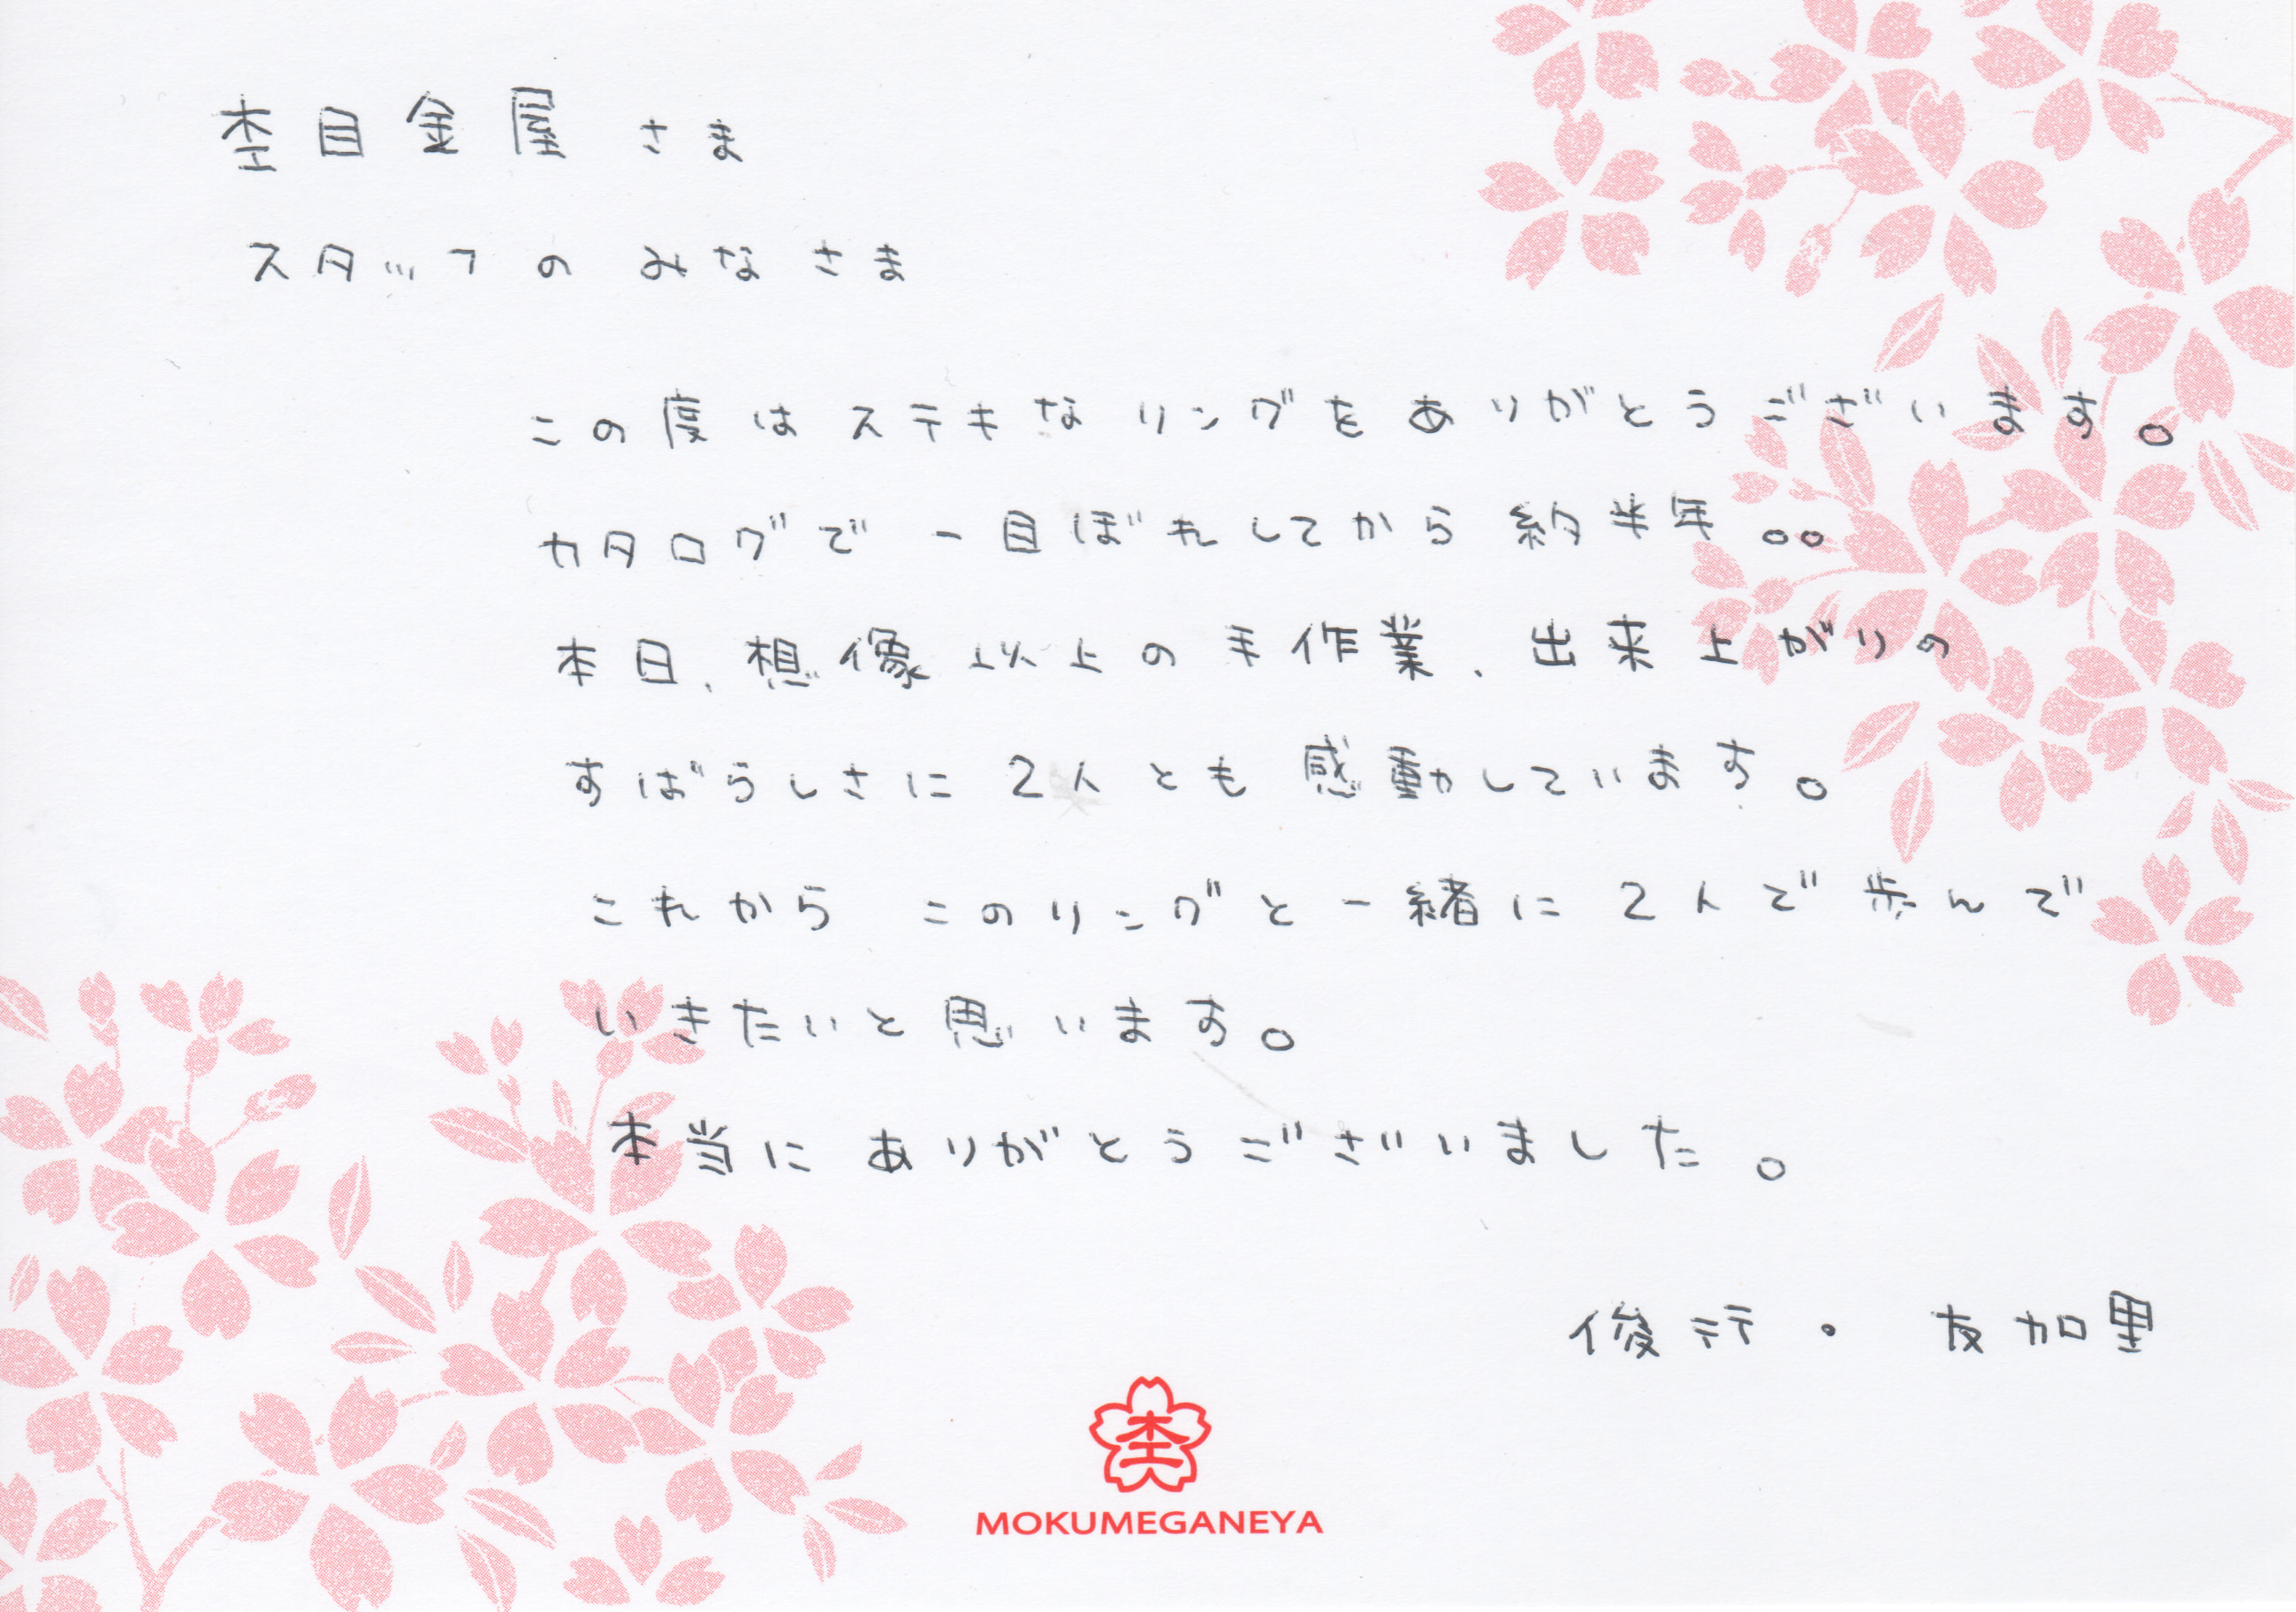 杢目金屋さま
スタッフの みなさま
この度は ステキなリングを ありがとうございます。
カタログで 一目ぼれしてから 約半年。。
本日、想像以上の手作業、出来上がりの
すばらしさに 2人とも 感動しています。
これから このリングと一緒に 2人で歩んで
いきたいと思います。
本当に ありがとうございました。
俊行・友加里
杢
MOKUMEGANEYA